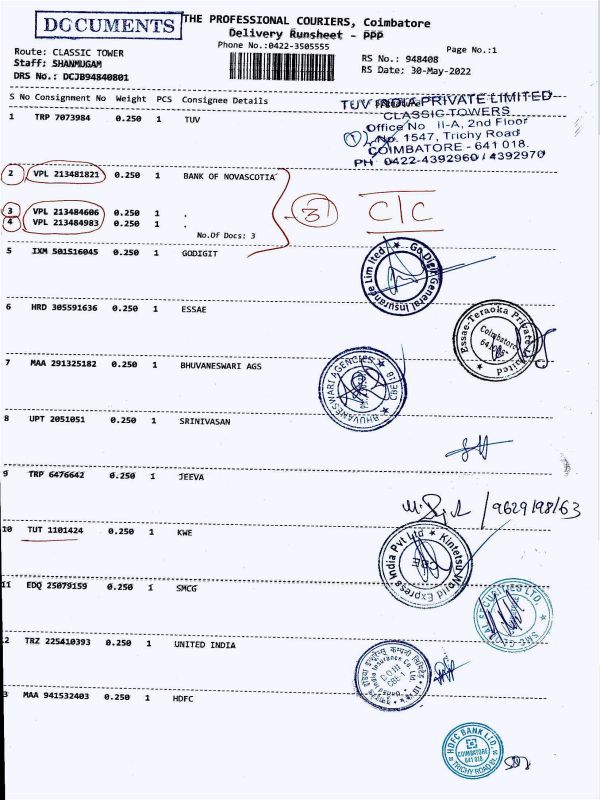 DOCUMENTS
THE PROFESSIONAL COURIERS, Coimbatore
Delivery Runsheet - PPP
Phone No.:0422-3505555
Page No.:1
Route: CLASSIC TOWER
Staff: SHANMUGAM
DRS No.: DCJB94840801
RS No.: 948408
RS Date: 30-May-2022
S No Consignment No Weight PCS Consignee Details
1 TRP 7073984 0.250 1 TUV
TUV INDIA PRIVATE LIMITED
CLASSIC TOWERS
Office No II-A, 2nd Floor
No. 1547, Trichy Road
COIMBATORE - 641 018.
PH 0422-4392960 / 4392970
2 VPL 213481821 0.250 1 BANK OF NOVASCOTIA
3 VPL 213484606 0.250 1 .
4 VPL 213484983 0.250 1 .
No.Of Docs: 3
3 C/C
5 IXM 501516045 0.250 1 GODIGIT
Go Digit General Insurance Limited
6 HRD 305591636 0.250 1 ESSAE
Essae-Teraoka Private Limited
Coimbatore
7 MAA 291325182 0.250 1 BHUVANESWARI AGS
BHUVANESWARI AGENCIES
CBE-18
8 UPT 2051051 0.250 1 SRINIVASAN
9 TRP 6476642 0.250 1 JEEVA
/9629198163
10 TUT 1101424 0.250 1 KWE
Kintetsu World Express India Pvt Ltd
CBE
11 EDQ 25079159 0.250 1 SMCG
SMC GLOBAL SECURITIES LTD.
2 TRZ 225410393 0.250 1 UNITED INDIA
India Insurance Co. Ltd.
3 MAA 941532403 0.250 1 HDFC
HDFC BANK LTD.
COIMBATORE
641 018
TRICHY ROAD BR.